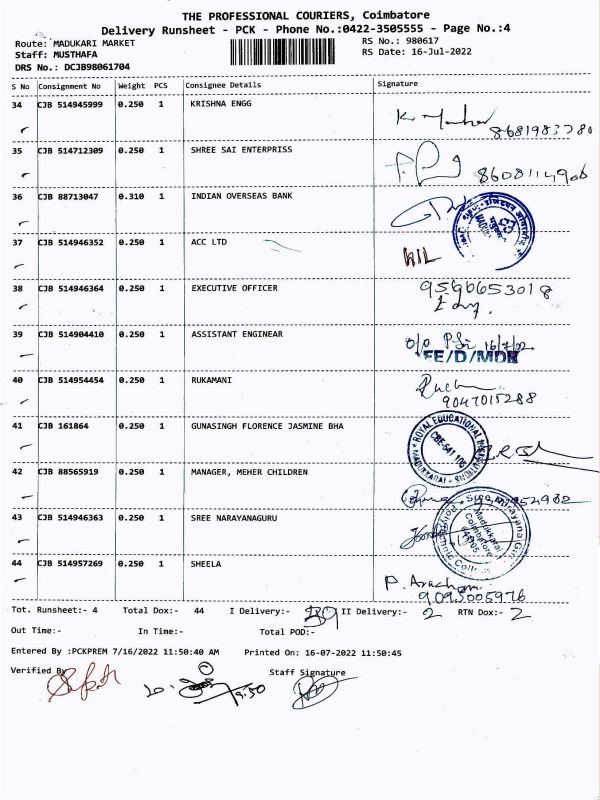 THE PROFESSIONAL COURIERS, Coimbatore
Delivery Runsheet - PCK - Phone No.:0422-3505555 - Page No.:4
Route: MADUKARI MARKET RS No.: 980617
Staff: MUSTHAFA RS Date: 16-Jul-2022
DRS No.: DCJB98061704
S No Consignment No Weight PCS Consignee Details Signature
34 CJB 514945999 0.250 1 KRISHNA ENGG
8681983780
35 CJB 514712309 0.250 1 SHREE SAI ENTERPRISS
8608114906
36 CJB 88713047 0.310 1 INDIAN OVERSEAS BANK
37 CJB 514946352 0.250 1 ACC LTD
38 CJB 514946364 0.250 1 EXECUTIVE OFFICER
39 CJB 514904410 0.250 1 ASSISTANT ENGINEAR
16/7/22
EE/D/MDR
40 CJB 514954454 0.250 1 RUKAMANI
9047015288
41 CJB 161864 0.250 1 GUNASINGH FLORENCE JASMINE BHA
ROYAL EDUCATIONAL
42 CJB 88565919 0.250 1 MANAGER, MEHER CHILDREN
43 CJB 514946363 0.250 1 SREE NARAYANAGURU
Madukkarai
Coimbatore
44 CJB 514957269 0.250 1 SHEELA
9095005976
Tot. Runsheet:- 4 Total Dox:- 44 I Delivery:- 39 II Delivery:- 2 RTN Dox:- 2
Out Time:- In Time:- Total POD:-
Entered By :PCKPREM 7/16/2022 11:50:40 AM Printed On: 16-07-2022 11:50:45
Verified By Staff Signature